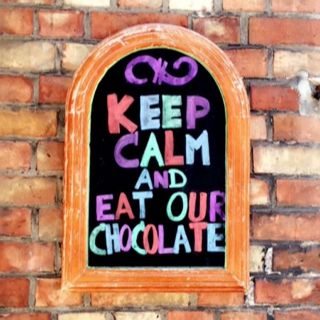 KEEP
CALM
AND
EAT OUR
CHOCOLATE